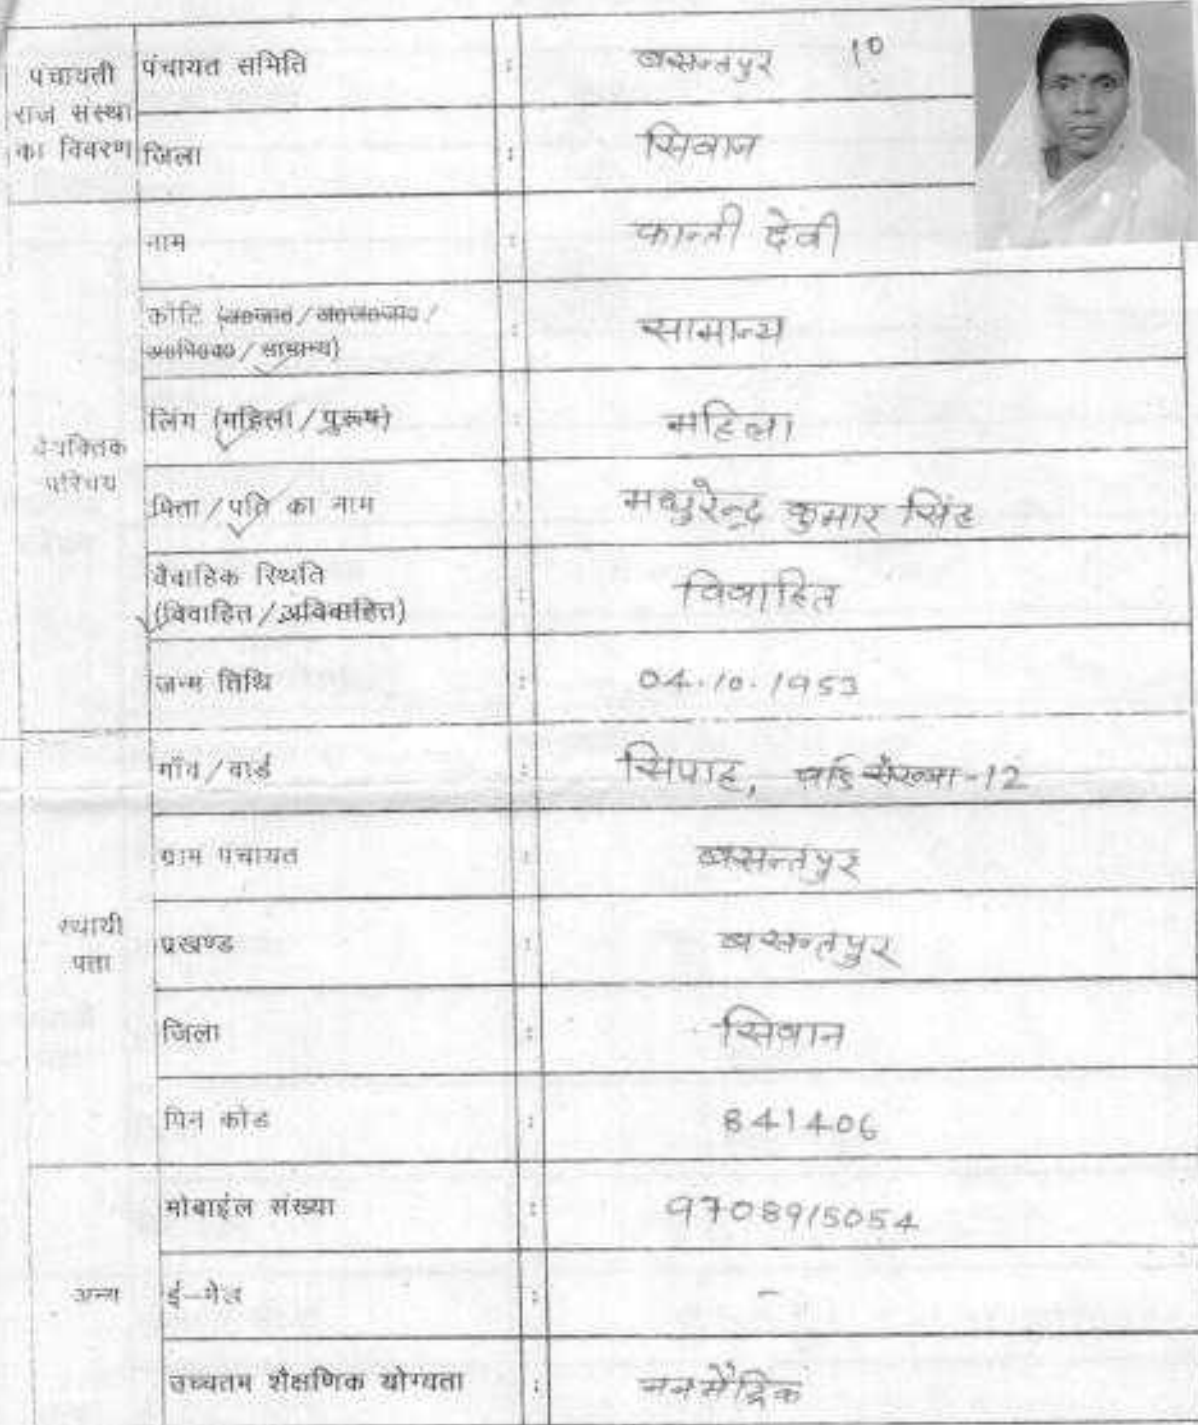 पंचायती राज संस्था का विवरण
पंचायत समिति : बसन्तपुर 10
जिला : सिवान
वैयक्तिक परिचय
नाम : कान्ती देवी
कोटि (अ०जा०/अ०ज०जा०/
अ०पि०व०/सामान्य) : सामान्य
लिंग (महिला/पुरूष) : महिला
पिता/पति का नाम : मथुरेन्द्र कुमार सिंह
वैवाहिक स्थिति
(विवाहित/अविवाहित) : विवाहित
जन्म तिथि : 04.10.1953
स्थायी पता
गाँव/वार्ड : सिपाह, वार्ड संख्या-12
ग्राम पंचायत : बसन्तपुर
प्रखण्ड : बसन्तपुर
जिला : सिवान
पिन कोड : 841406
अन्य
मोबाईल संख्या : 9708915054
ई-मेल : -
उच्चतम शैक्षणिक योग्यता : ननमैट्रिक